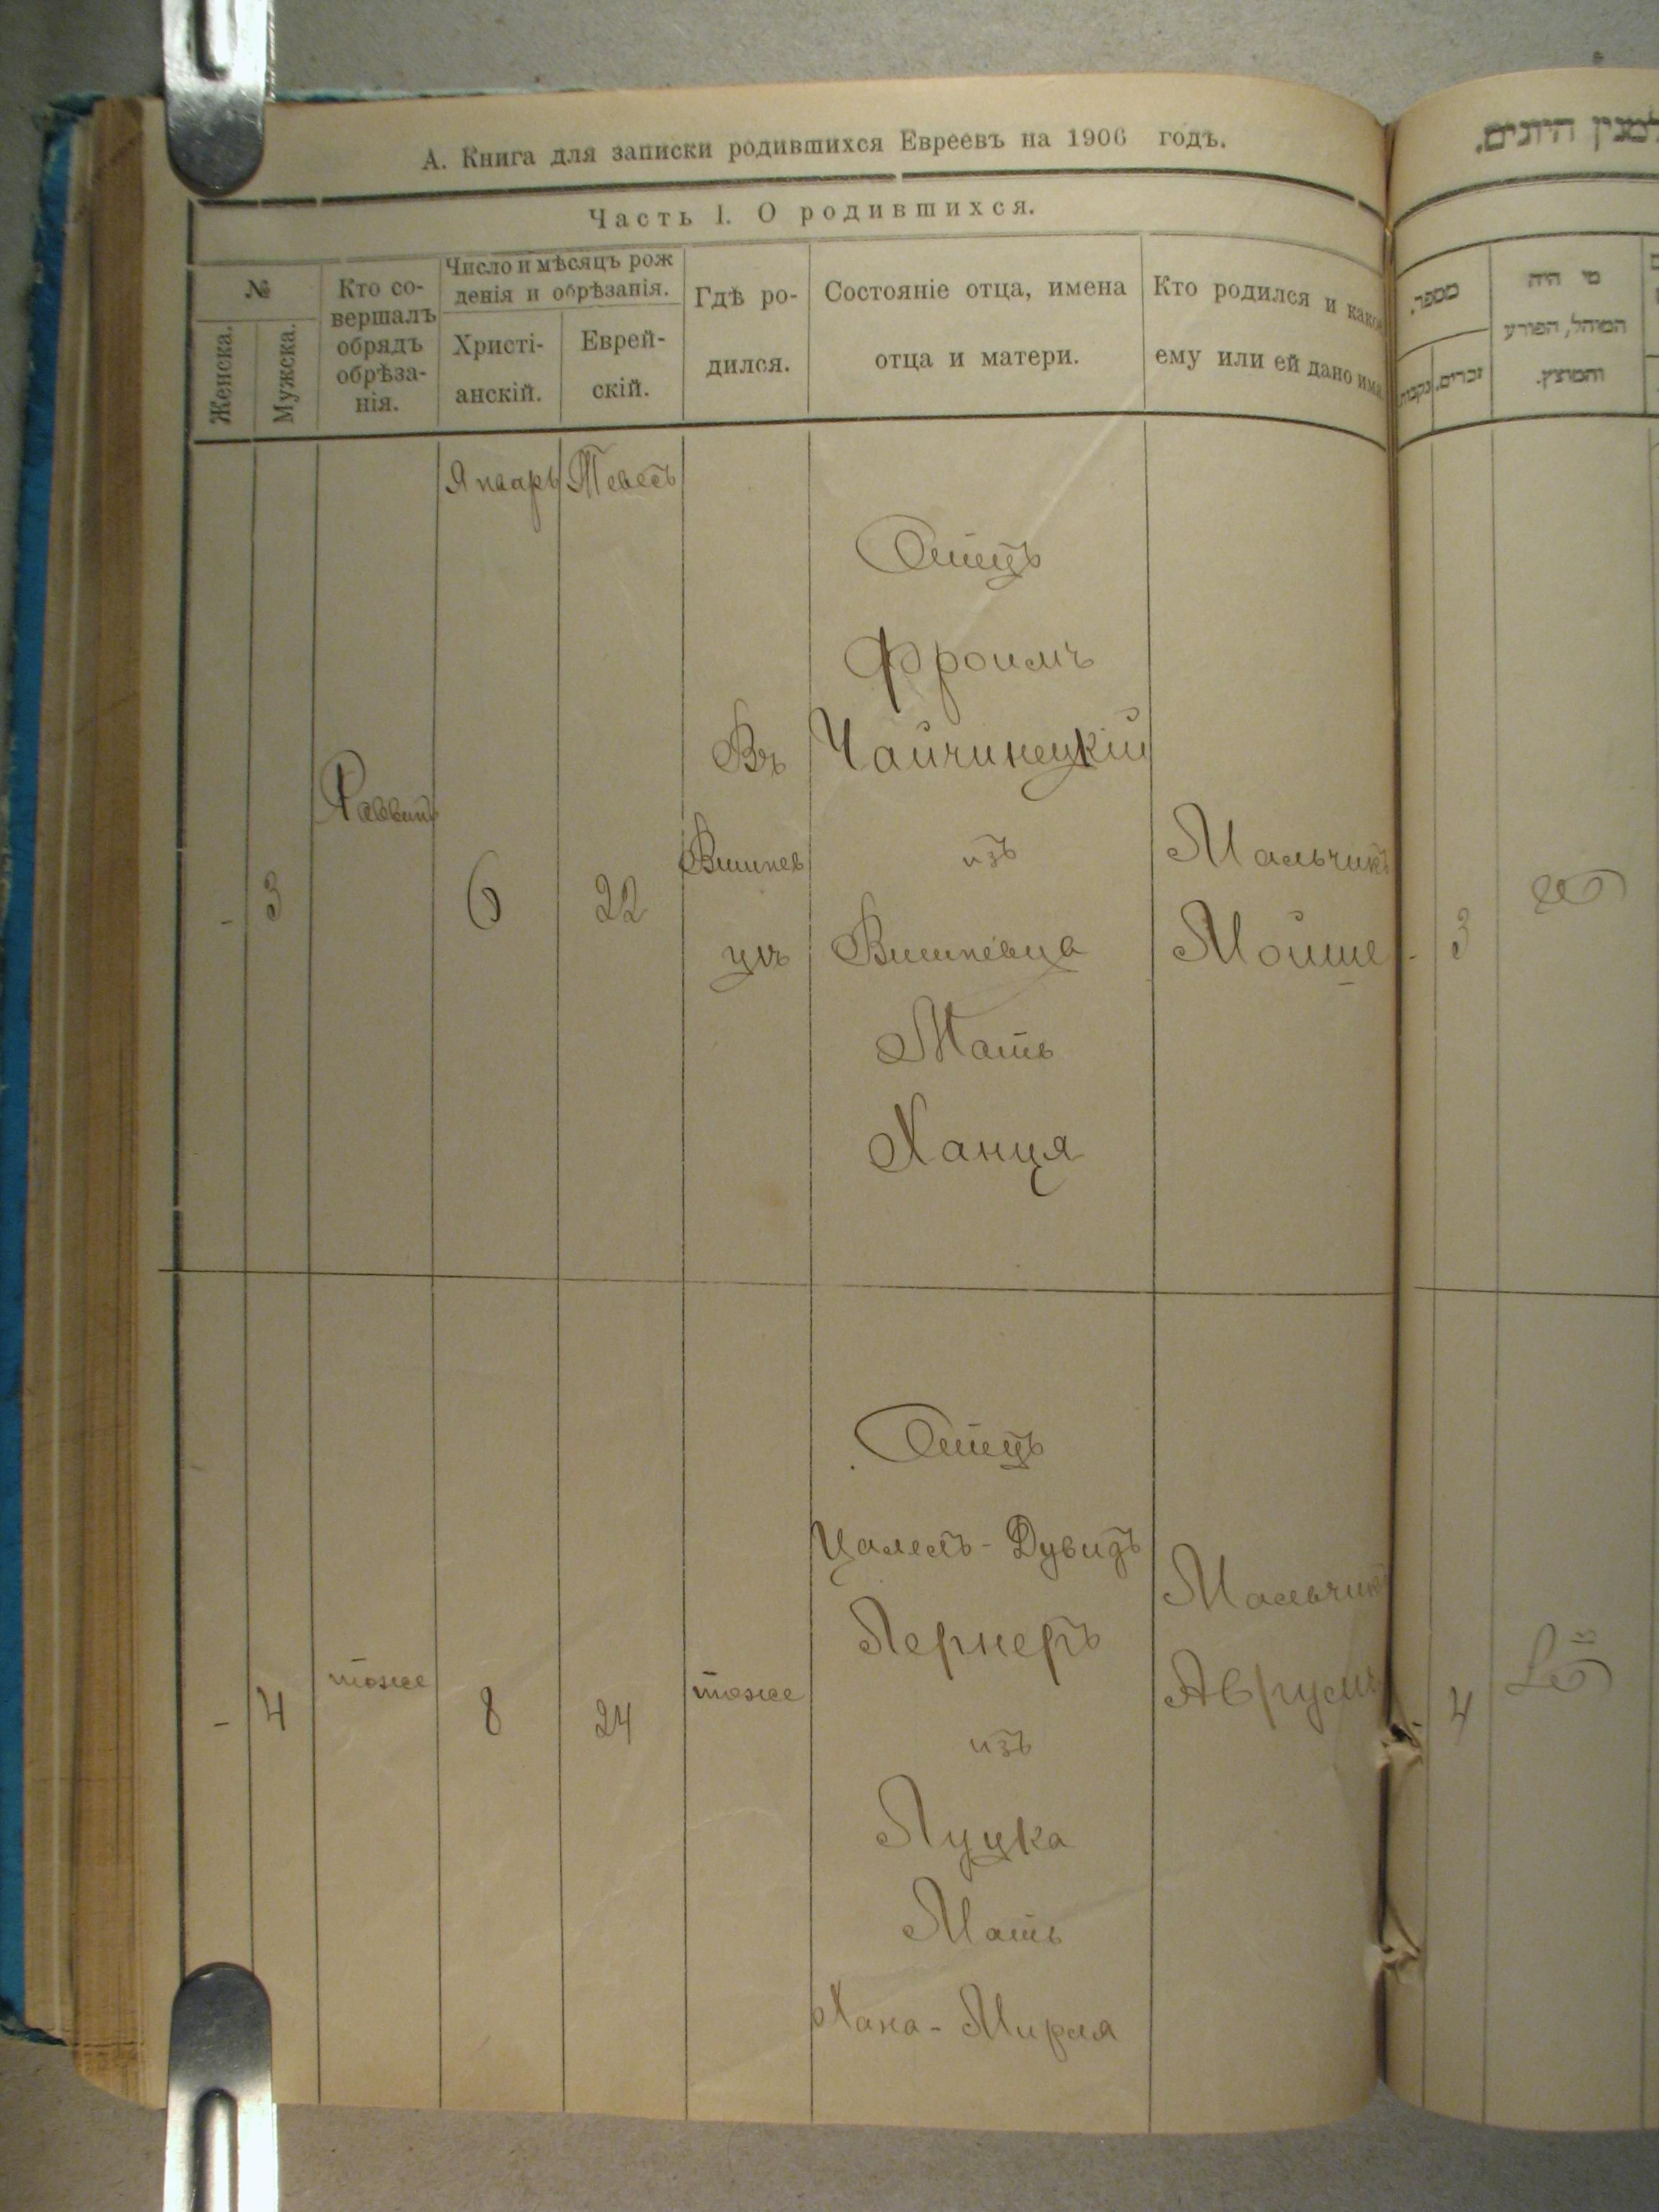 А. Книга для записки родившихся Евреевъ на 1906 годъ.
Часть I. О родившихся.
№
Женска.
Мужска.
Кто со-
вершалъ
обрядъ
обрѣза-
нія.
Число и мѣсяцъ рож
денія и обрѣзанія.
Христі-
анскій.
Еврей-
скій.
Гдѣ ро-
дился.
Состояніе отца, имена
отца и матери.
Кто родился и какое
ему или ей дано имя.
Январь
Тевесъ
-
3
Раввинъ
6
22
Въ
Вишнев
цѣ
Отецъ
Фроимъ
Чайчинецкій
изъ
Вишневца
Мать
Ханця
Мальчикъ
Мойше
-
4
тоже
8
24
тоже
Отецъ
Цалелъ-Дувидъ
Лернеръ
изъ
Луцка
Мать
Хана-Мирля
Мальчикъ
Аврумъ
למנין היונים.
מספר.
נקבות
זכרים.
מי היה
המוהל, הפורע
והמוצץ.
3
4